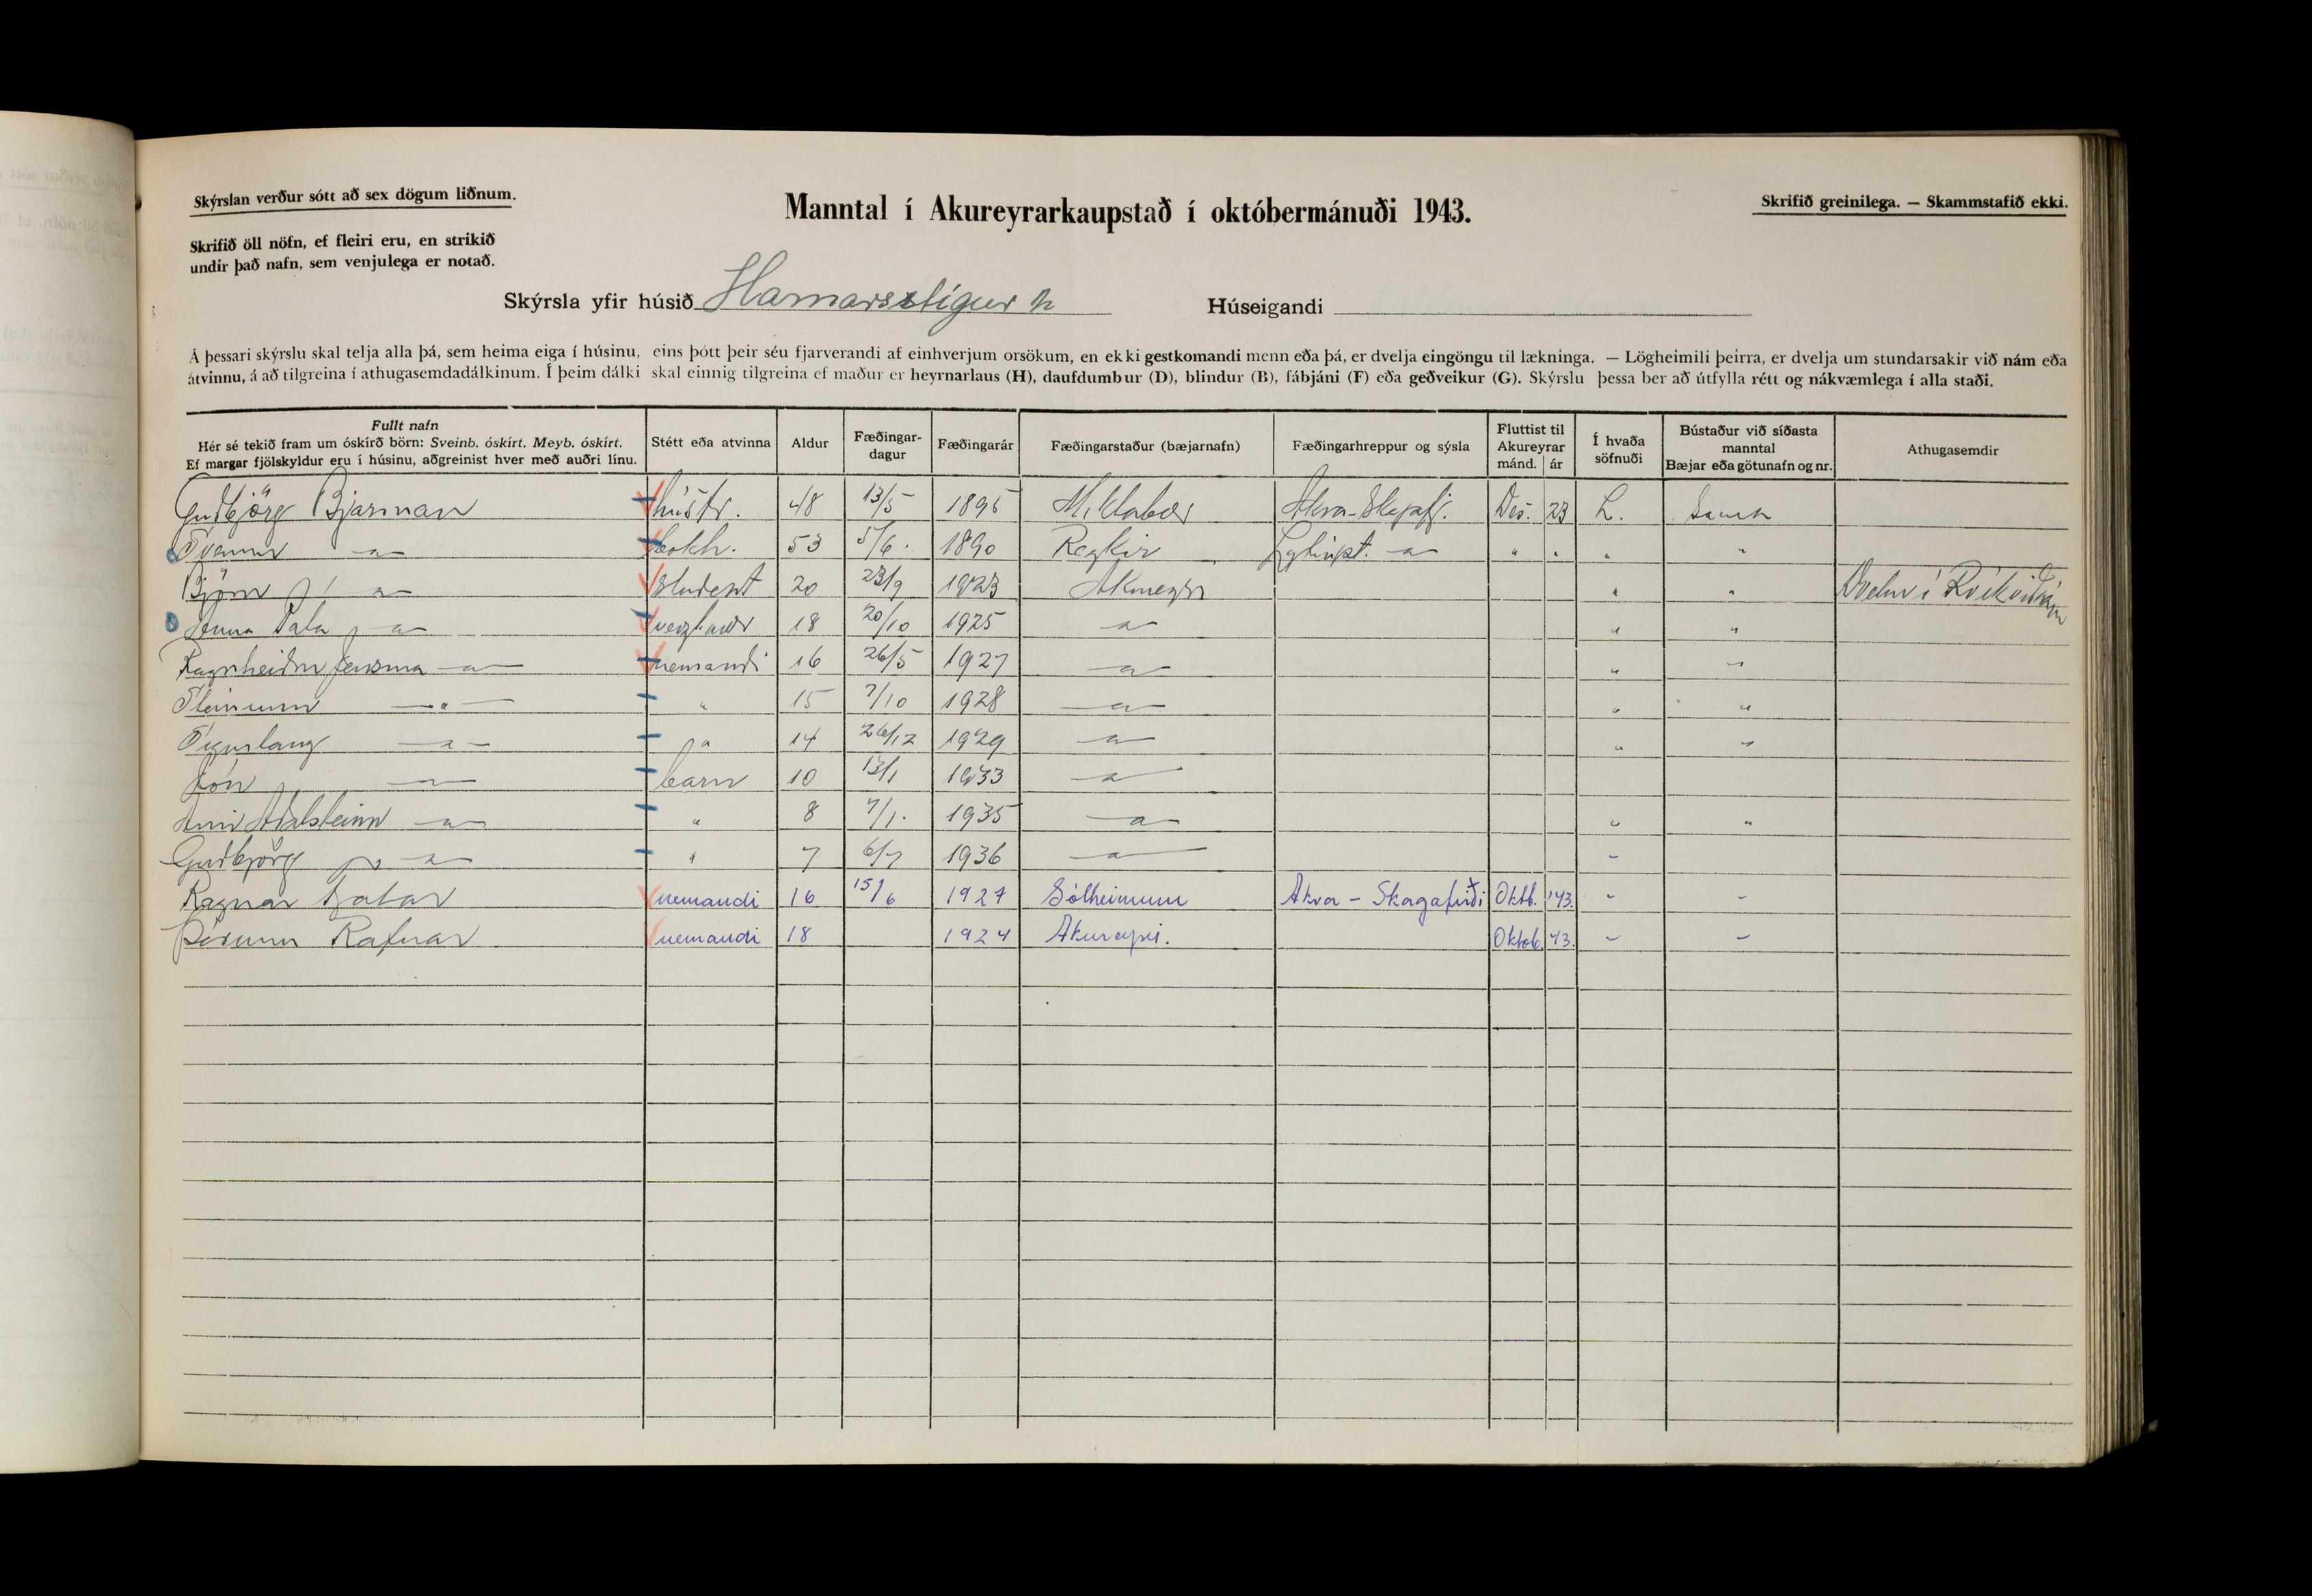 Skýrslan verður sótt að sex dögum liðnum.
Manntal í Akureyrarkaupstað í októbermánuði 1943.
Skrifið greinilega. — Skammstafið ekki.
Skrifið öll nöfn, ef fleiri eru, en strikið
undir það nafn, sem venjulega er notað.
Skýrsla yfir húsið Hamarsstígur
Húseigandi
Á þessari skýrslu skal telja alla þá, sem heima eiga í húsinu, eins þótt þeir séu fjarverandi af einhverjum orsökum, en ekki gestkomandi menn eða þá, er dvelja eingöngu til lækninga. — Lögheimili þeirra, er dvelja um stundarsakir við nám eða
atvinnu, á að tilgreina í athugasemdadálkinum. Í þeim dálki skal einnig tilgreina ef maður er heyrnarlaus (H), daufdumbur (D), blindur (B), fábjáni (F) eða geðveikur (G). Skýrslu þessa ber að útfylla rétt og nákvæmlega í alla staði.
Fullt nafn
Hér sé tekið fram um óskírð börn: Sveinb. óskírt. Meyb. óskírt.
Ef margar fjölskyldur eru í húsinu, aðgreinist hver með auðri línu.
Stétt eða atvinna
Aldur
Fæðingar-
dagur
Fæðingarár
Fæðingarstaður (bæjarnafn)
Fæðingarhreppur og sýsla
Fluttist til
Akureyrar
mánd. ár
Í hvaða
söfnuði
Bústaður við síðasta
manntal
Bæjar eða götunafn og nr.
Athugasemdir
Guðbjörg Bjarman hústr. 48 13/5 1895 Miklabær Akra-Skagafj. Des. 23 L. Sama
Sveinn — " — bókh. 53 5/6. 1890 Reykir Lýtingst. — " — " " " "
Björn — " — Student 20 23/9 1923 Akureyri " " Dvelur í Rvík við nám
Anna — " — 18 20/10 1925 — " — " "
Ragnheiður Jensína — " — nemandi 16 26/5 1927 — " — " "
Steinunn — " — " 15 7/10 1928 — " — " "
Sigurlaug — " — " 14 26/12 1929 — " — " "
Jón — " — barn 10 13/1 1933 — " —
Árni Aðalsteinn — " — " 8 7/1. 1935 — " — " "
Guðbjörg — " — " 7 6/7 1936 — " — "
Ragnar nemandi 16 15/6 1927 Sólheimum Akra - Skagafirði Oktb. '43. " "
Þórunn Rafnar nemandi 18 1924 Akureyri. Oktob. 43. " "